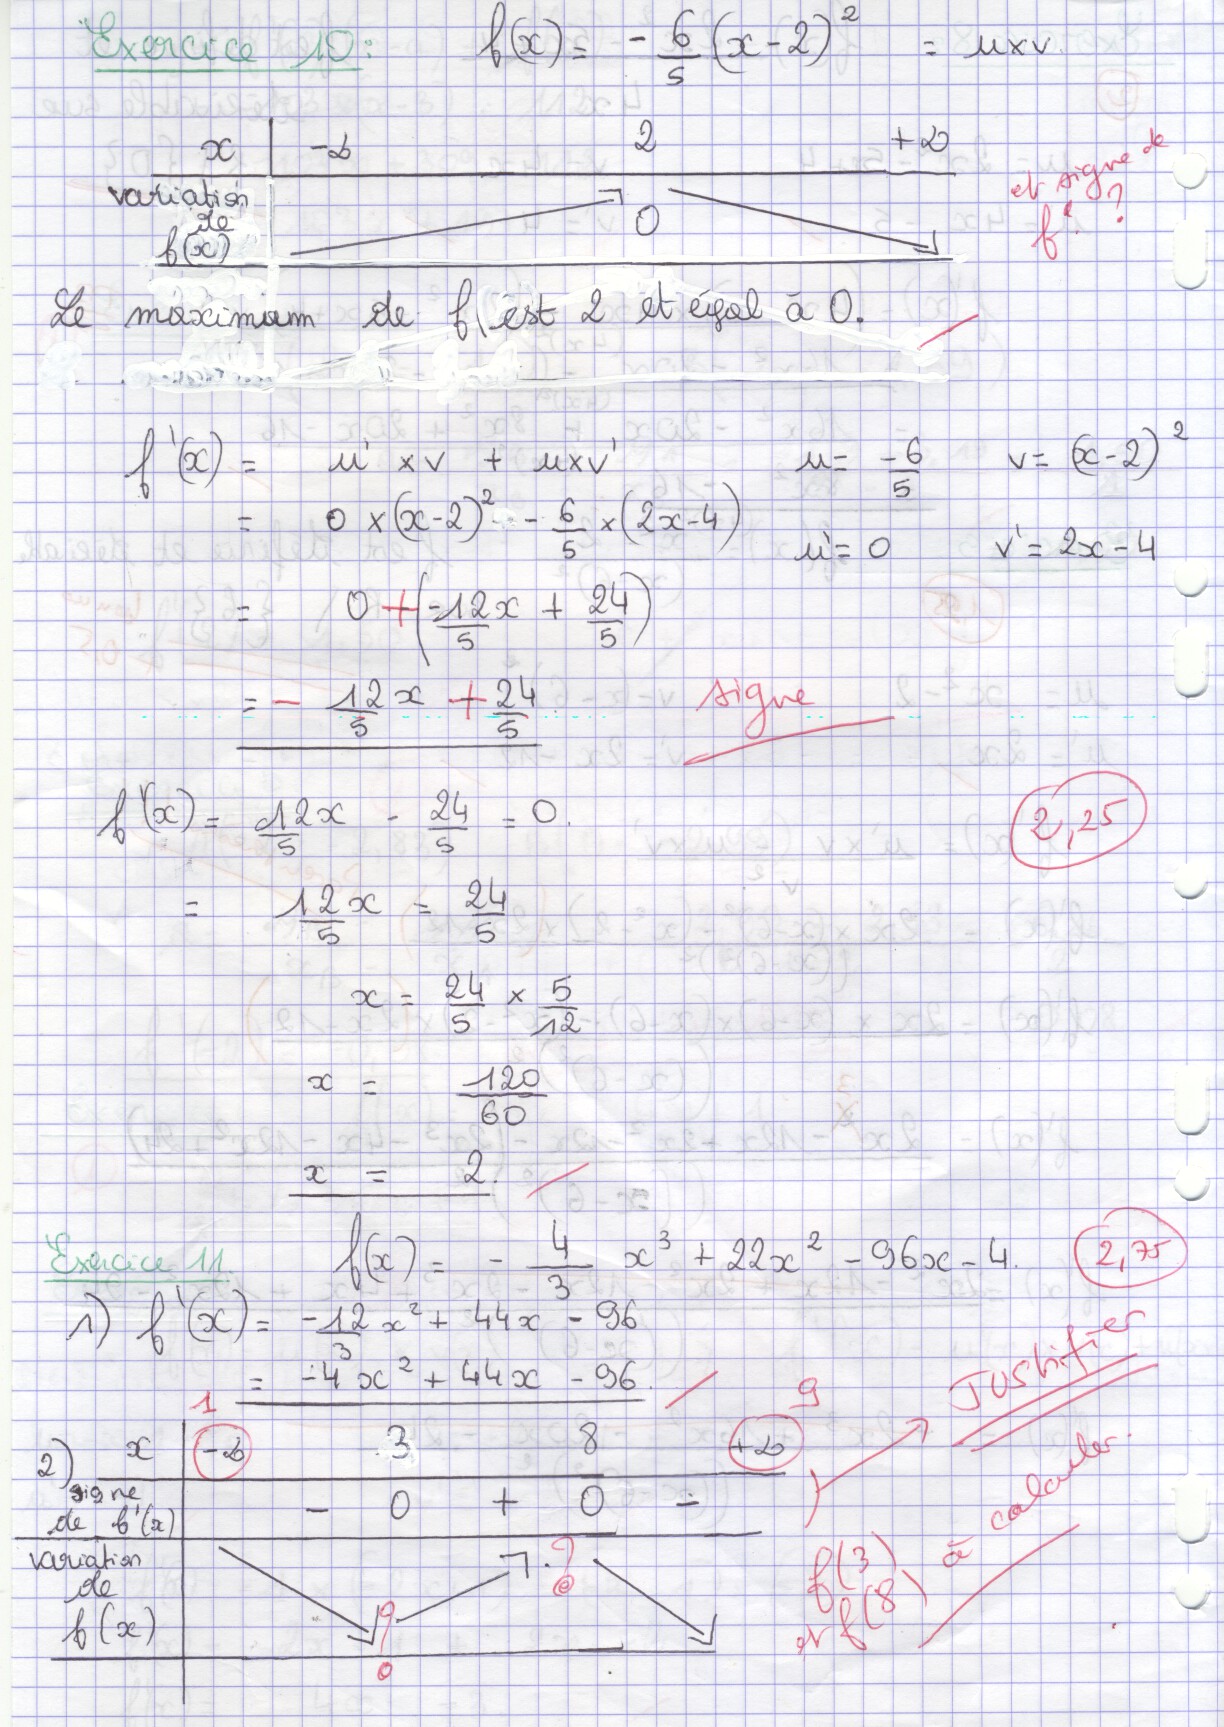 Exercice 10: f(x) = - 6/5 (x-2)² = u×v
x -∞ 2 +∞
variation de f(x) 0
et signe de f' ?
Le maximum de f est 2 et égal à 0.
f'(x) = u' × v + u×v' u = -6/5 v = (x-2)²
= 0 × (x-2)² - 6/5 × (2x-4)
u' = 0 v' = 2x-4
= 0 + (-12/5 x + 24/5)
= - 12/5 x + 24/5 signe
f'(x) = 12x/5 - 24/5 = 0. 2,25
= 12/5 x = 24/5
x = 24/5 × 5/12
x = 120/60
x = 2.
Exercice 11. f(x) = - 4/3 x³ + 22x² - 96x - 4. 2,75
1) f'(x) = -12/3 x² + 44x - 96
= -4x² + 44x - 96.
Justifier
1 9
2) x -∞ 3 8 +∞
signe de f'(x) - 0 + 0 -
variation de f(x) ? ?
f(3) et f(8) à calculer.